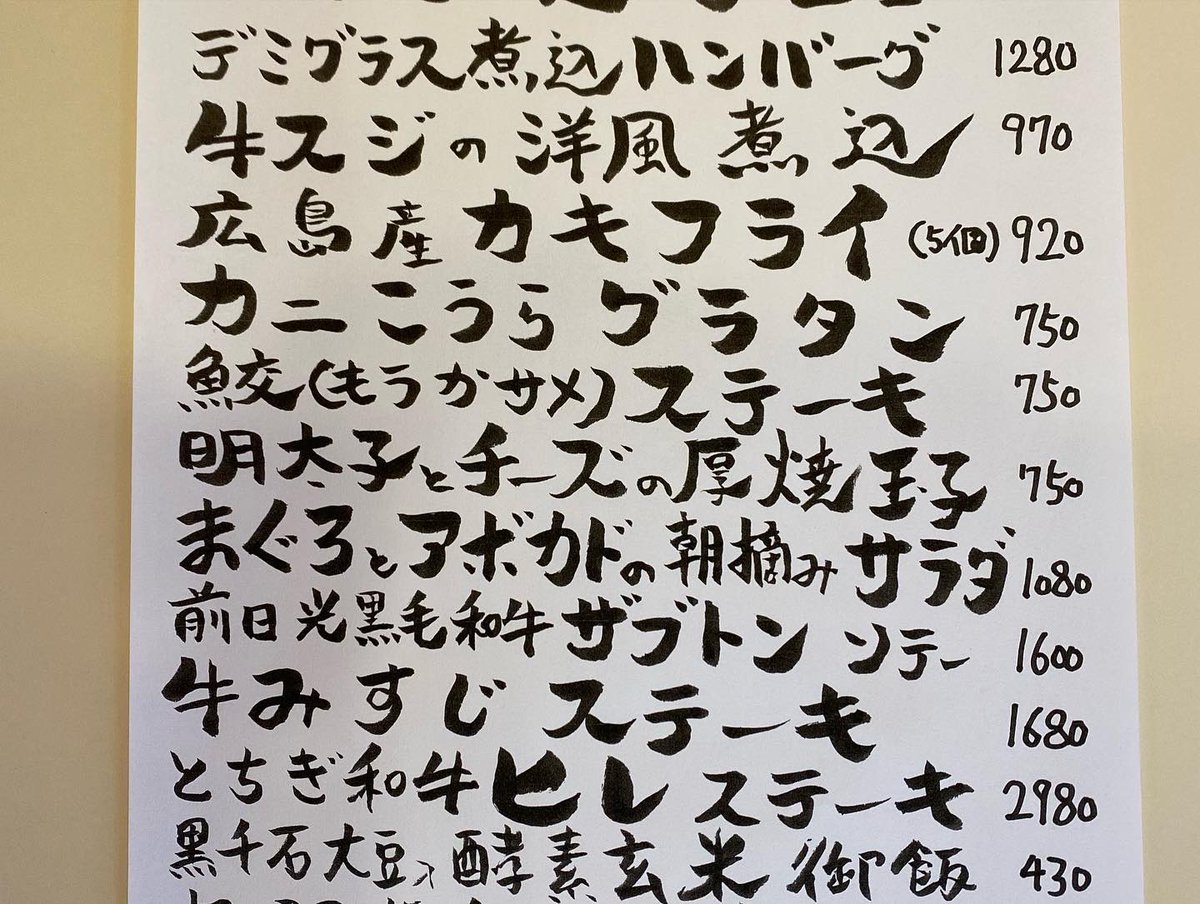 デミグラス煮込ハンバーグ 1280
牛スジの洋風煮込 970
広島産カキフライ(5個) 920
カニこうらグラタン 750
鮫(もうかサメ)ステーキ 750
明太子とチーズの厚焼玉子 750
まぐろとアボカドの朝摘みサラダ 1080
前日光黒毛和牛ザブトンソテー 1600
牛みすじステーキ 1680
とちぎ和牛ヒレステーキ 2980
黒千石大豆入酵素玄米御飯 430